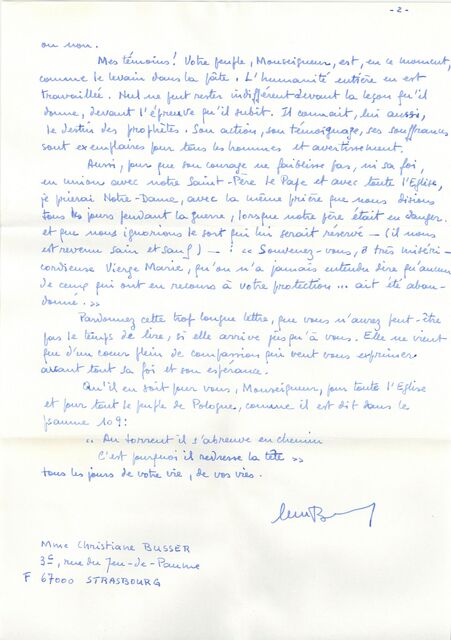 - 2 -
ou non.
Mes témoins! Votre peuple, Monseigneur, est, en ce moment,
comme le levain dans la pâte. L'humanité entière en est
travaillée. Nul ne peut rester indifférent devant la leçon qu'il
donne, devant l'épreuve qu'il subit. Il connaît, lui aussi,
le destin des prophètes. Son action, son témoignage, ses souffrances
sont exemplaires pour tous les hommes et avertissement.
Aussi, pour que son courage ne faiblisse pas, ni sa foi,
en union avec notre Saint-Père le Pape et avec toute l'Eglise,
je prierai Notre-Dame, avec la même prière que nous disions
tous les jours pendant la guerre, lorsque notre père était en danger
et que nous ignorions le sort qui lui serait réservé - (il nous
est revenu sain et sauf) - : « Souvenez-vous, ô très miséri-
cordieuse Vierge Marie, qu'on n'a jamais entendu dire qu'aucun
de ceux qui ont eu recours à votre protection ... ait été aban-
donné. »
Pardonnez cette trop longue lettre, que vous n'aurez peut-être
pas le temps de lire, si elle arrive jusqu'à vous. Elle ne vient
que d'un cœur plein de compassion qui veut vous exprimer
avant tout sa foi et son espérance.
Qu'il en soit pour vous, Monseigneur, pour toute l'Eglise
et pour tout le peuple de Pologne, comme il est dit dans le
psaume 109:
« Au torrent il s'abreuve en chemin
C'est pourquoi il redresse la tête »
tous les jours de votre vie, de vos vies.
Mme Christiane BUSSER
3c, rue du Jeu-de-Paume
F 67000 STRASBOURG